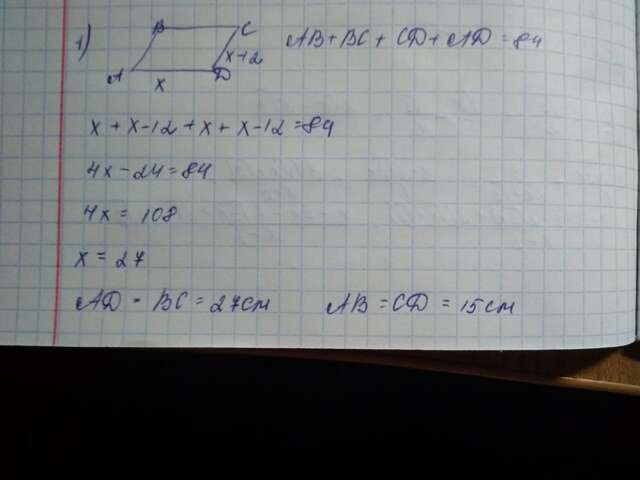 1) B C AB + BC + CD + AD = 84
A x D x-12
x + x-12 + x + x-12 = 84
4x - 24 = 84
4x = 108
x = 27
AD = BC = 27см AB = CD = 15см